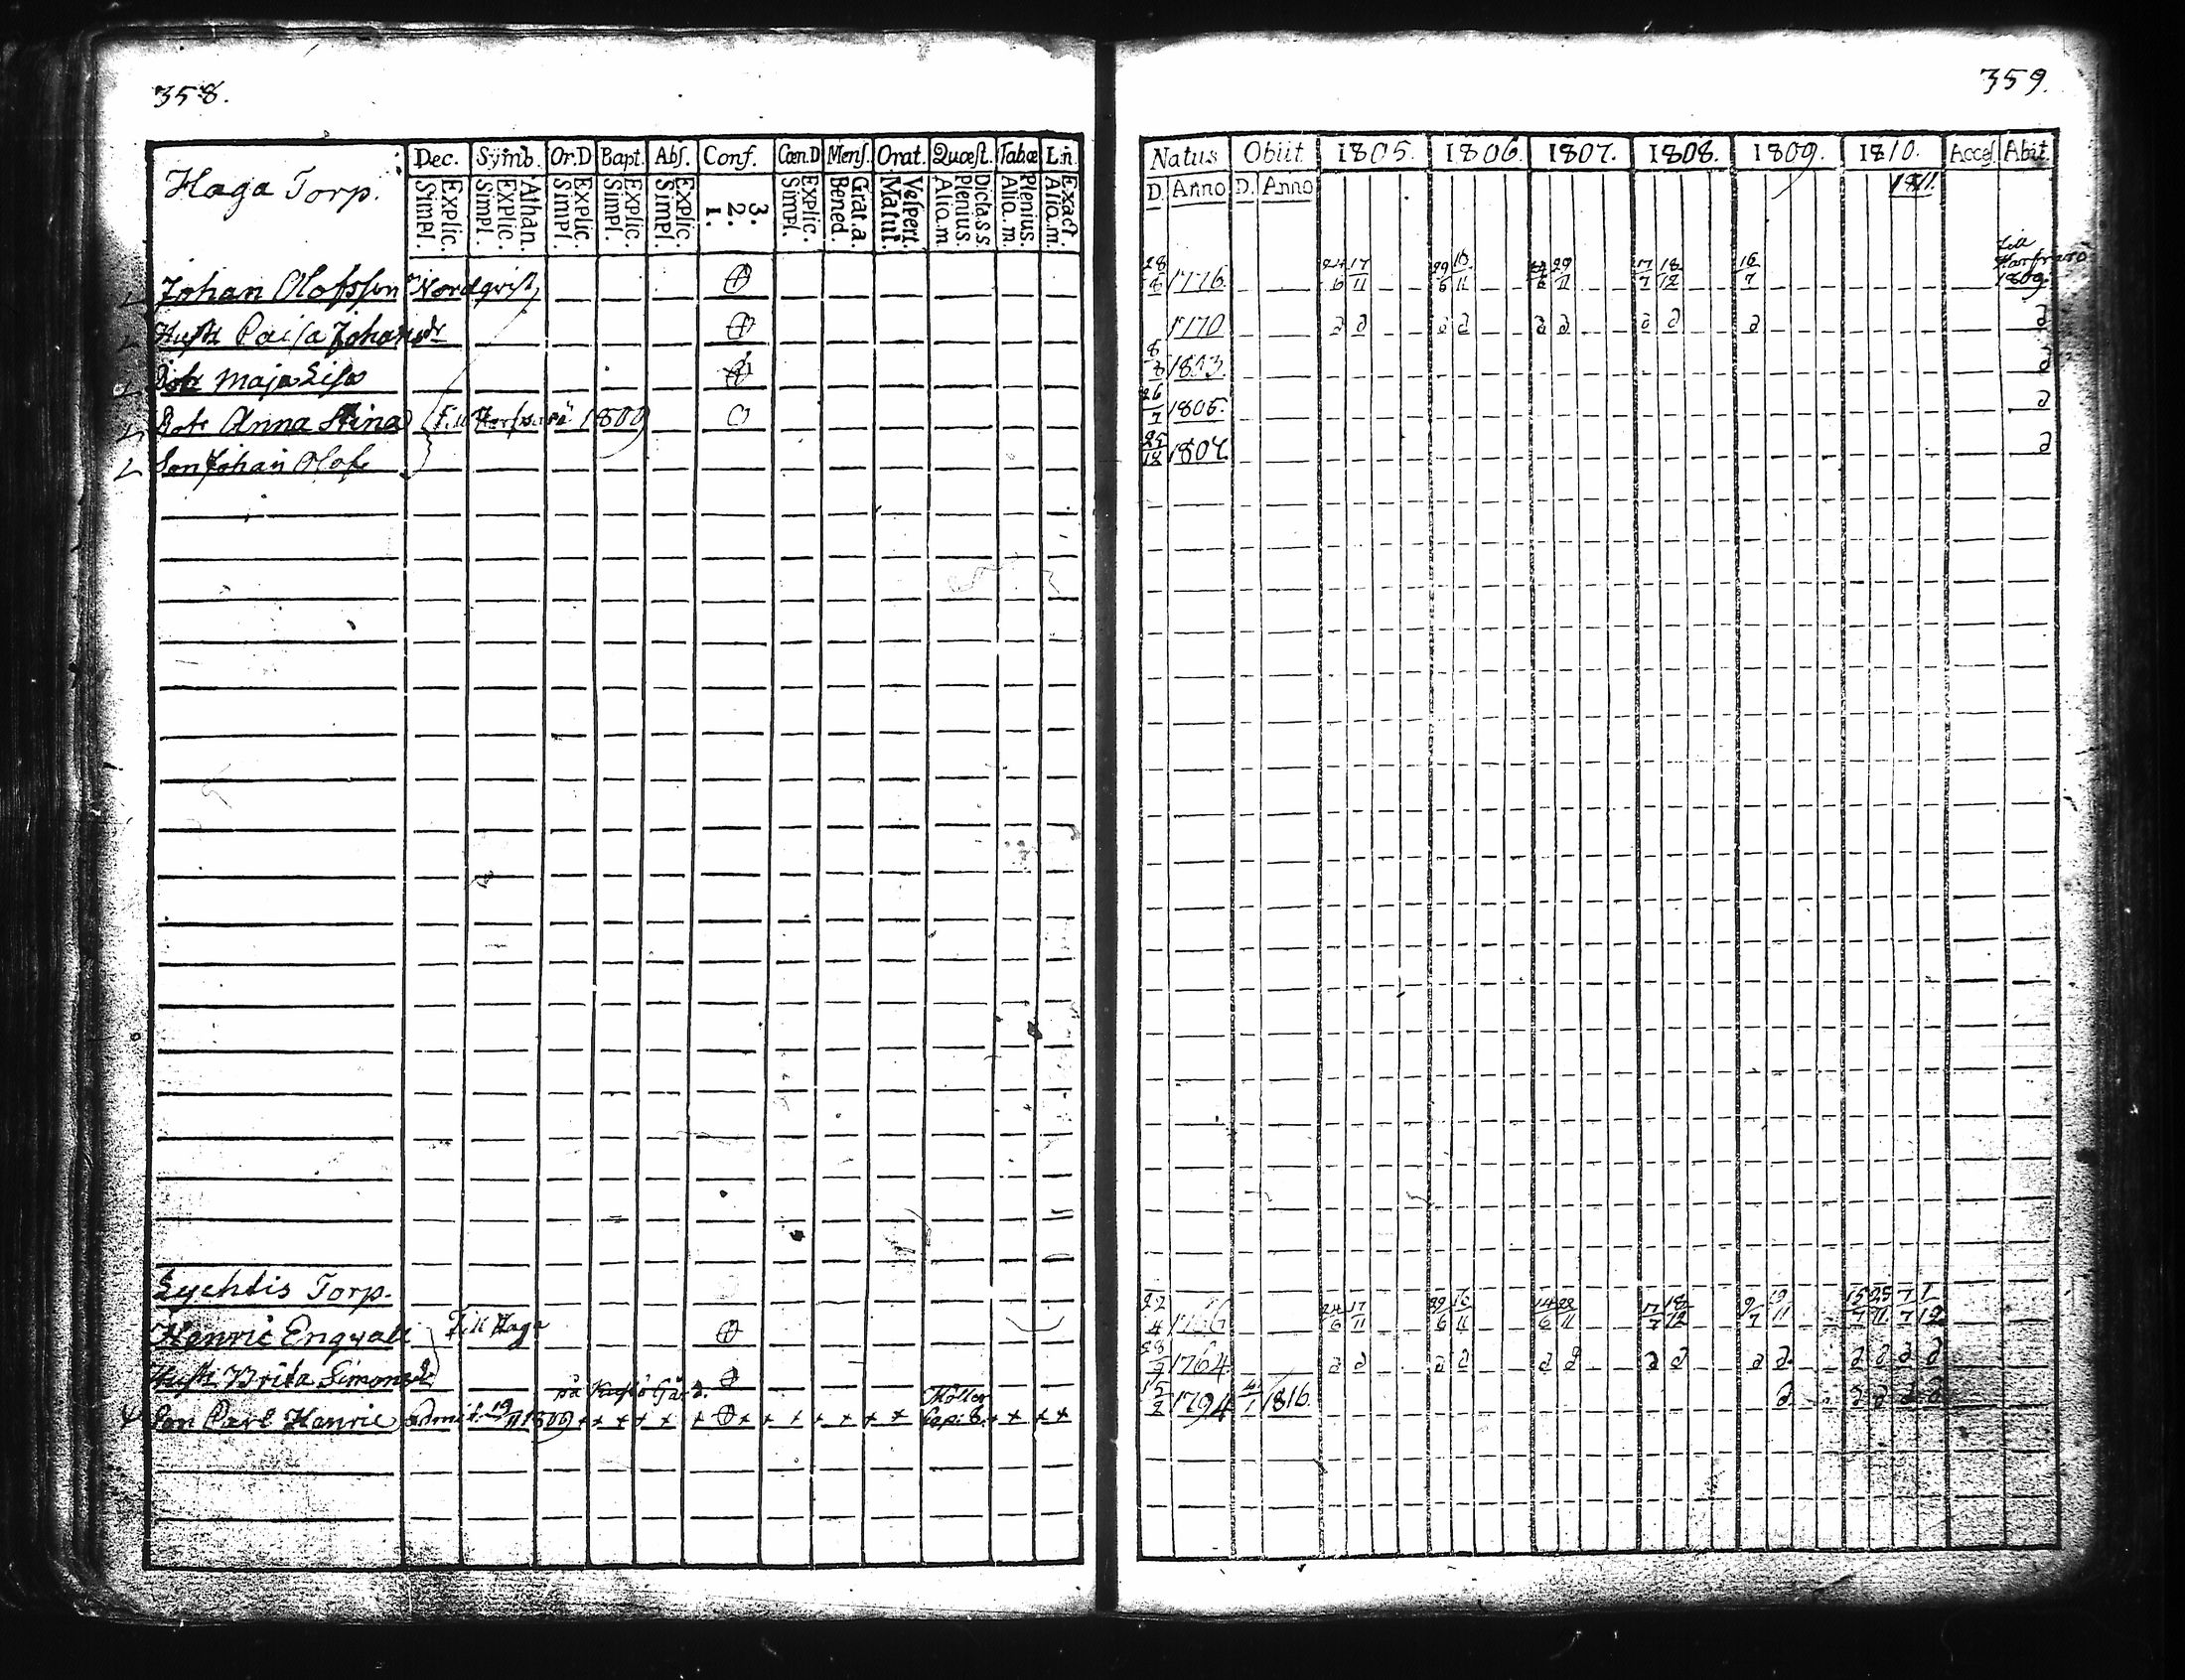 358.
Haga Torp.
Dec. Symb. Or.D Bapt. Abs. Conf. Cœn.D Mens. Orat. Quæst. Tabœ L.n.
Simpl. Explic. Simpl. Explic. Athan. Simpl. Explic. Simpl. Explic. Simpl. Explic. 1. 2. 3. Simpl. Explic. Bened. Grat.a. Matut. Vespert. Alio.m. Plenius. Dicta.s.s Alio.m. Plenius. Alio.m. Exact.
Johan Olofsson Nordqvist
Hust Caisa Johansdr
Dotr Maja Lisa
Dotr Anna Stina
Son Johan Olof
Lychtis Torp.
Henric Engvall Till Haga
Hust Brita Simonsdr
på Gård. Möller
Son Carl Henric admit. 19/11 1809 + + + + + + + + + + Cap: 8. + + + +
359.
Natus Obiit 1805. 1806. 1807. 1808. 1809. 1810. Acces Abit.
D. Anno D. Anno 1811.
28/8 1776. 24/6 17/11 29/6 16/11 29/11 17/7 18/12 16/7 Till 1809
1770 d d d d d d d d d d
8/8 1803. d
26/7 1805. d
25/12 1807. d
22/4 24/6 17/11 29/6 16/11 14/6 29/11 17/7 18/12 9/7 19/11 15/7 25/11 7/7 1/12
1764 d d d d d d d d d d d d d d
15/2 1794 1816. d d d d d